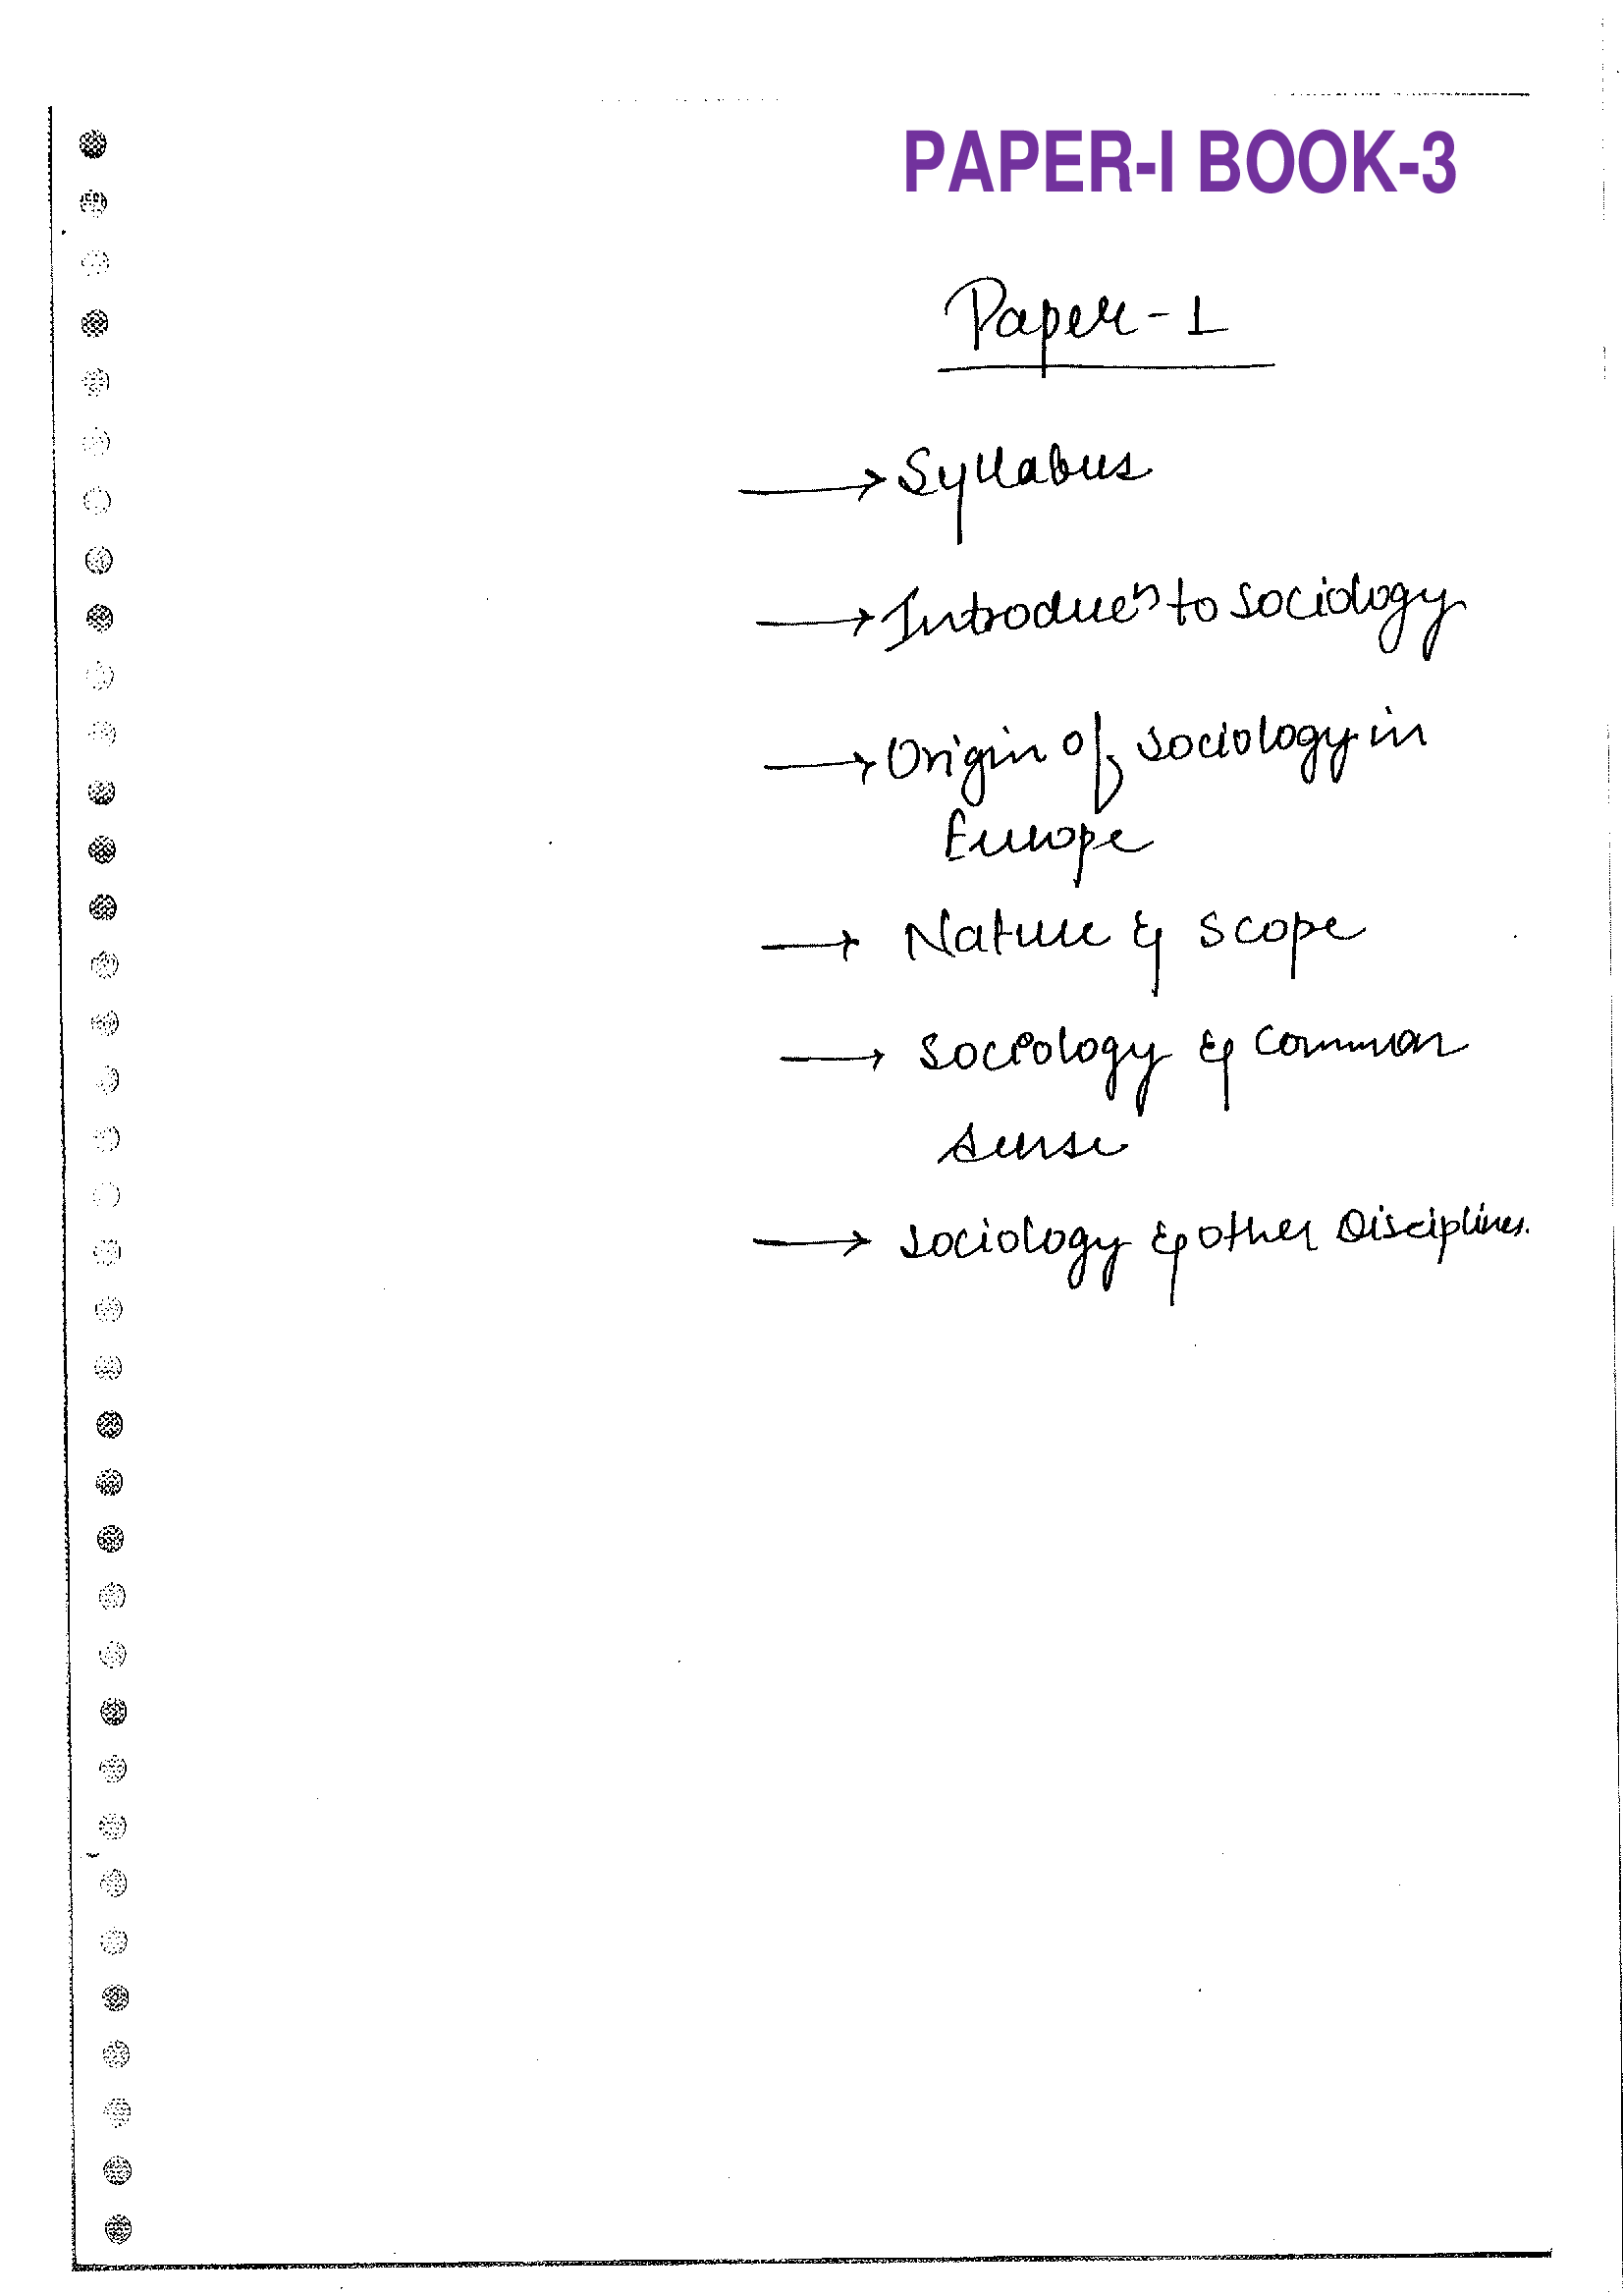 PAPER-I BOOK-3
Paper-1
→ Syllabus
→ Introducⁿ to Sociology
→ Origin of sociology in
Europe
→ Nature & scope
→ Sociology & Common
sense
→ sociology & other Disciplines.